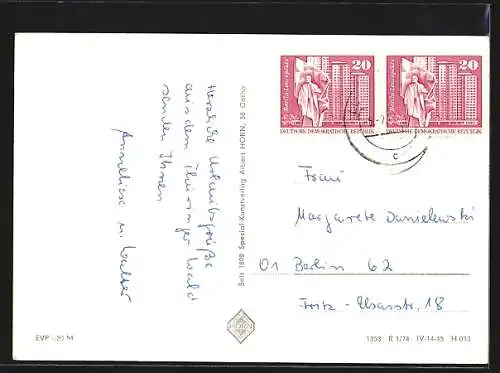 Herzliche Urlaubsgrüße
aus dem Thüringer Wald
senden Ihnen
Anneliese u. Walter
Seit 1898 Spezial-Kunstverlag Albert HORN, 58 Gotha
HORN
EVP -,20 M
Berlin-Leninplatz 20
DEUTSCHE DEMOKRATISCHE REPUBLIK
Berlin-Leninplatz 20
DEUTSCHE DEMOKRATISCHE REPUBLIK
c
Frau
Margarete Danielewski
01 Berlin 62
Fritz-Elsasstr. 18
1353 R 1/74 IV-14-45 H 013